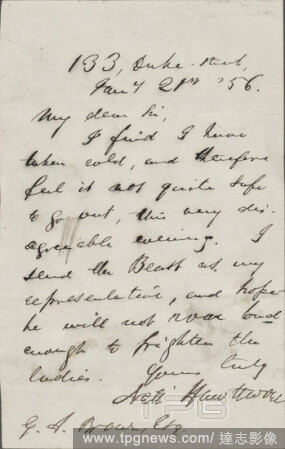 133, Duke street,
Jany 21st '56.
My dear Sir,
I find I have
taken cold, and therefore
feel it not quite safe
to go out, this very dis-
agreeable evening. I
send the Beast as my
representative, and hope
he will not roar loud
enough to frighten the
ladies.
Yours truly
Nath Hawthorne
G. A. Brown, Esq.
TPG
www.tpgnews.com / 達志影像